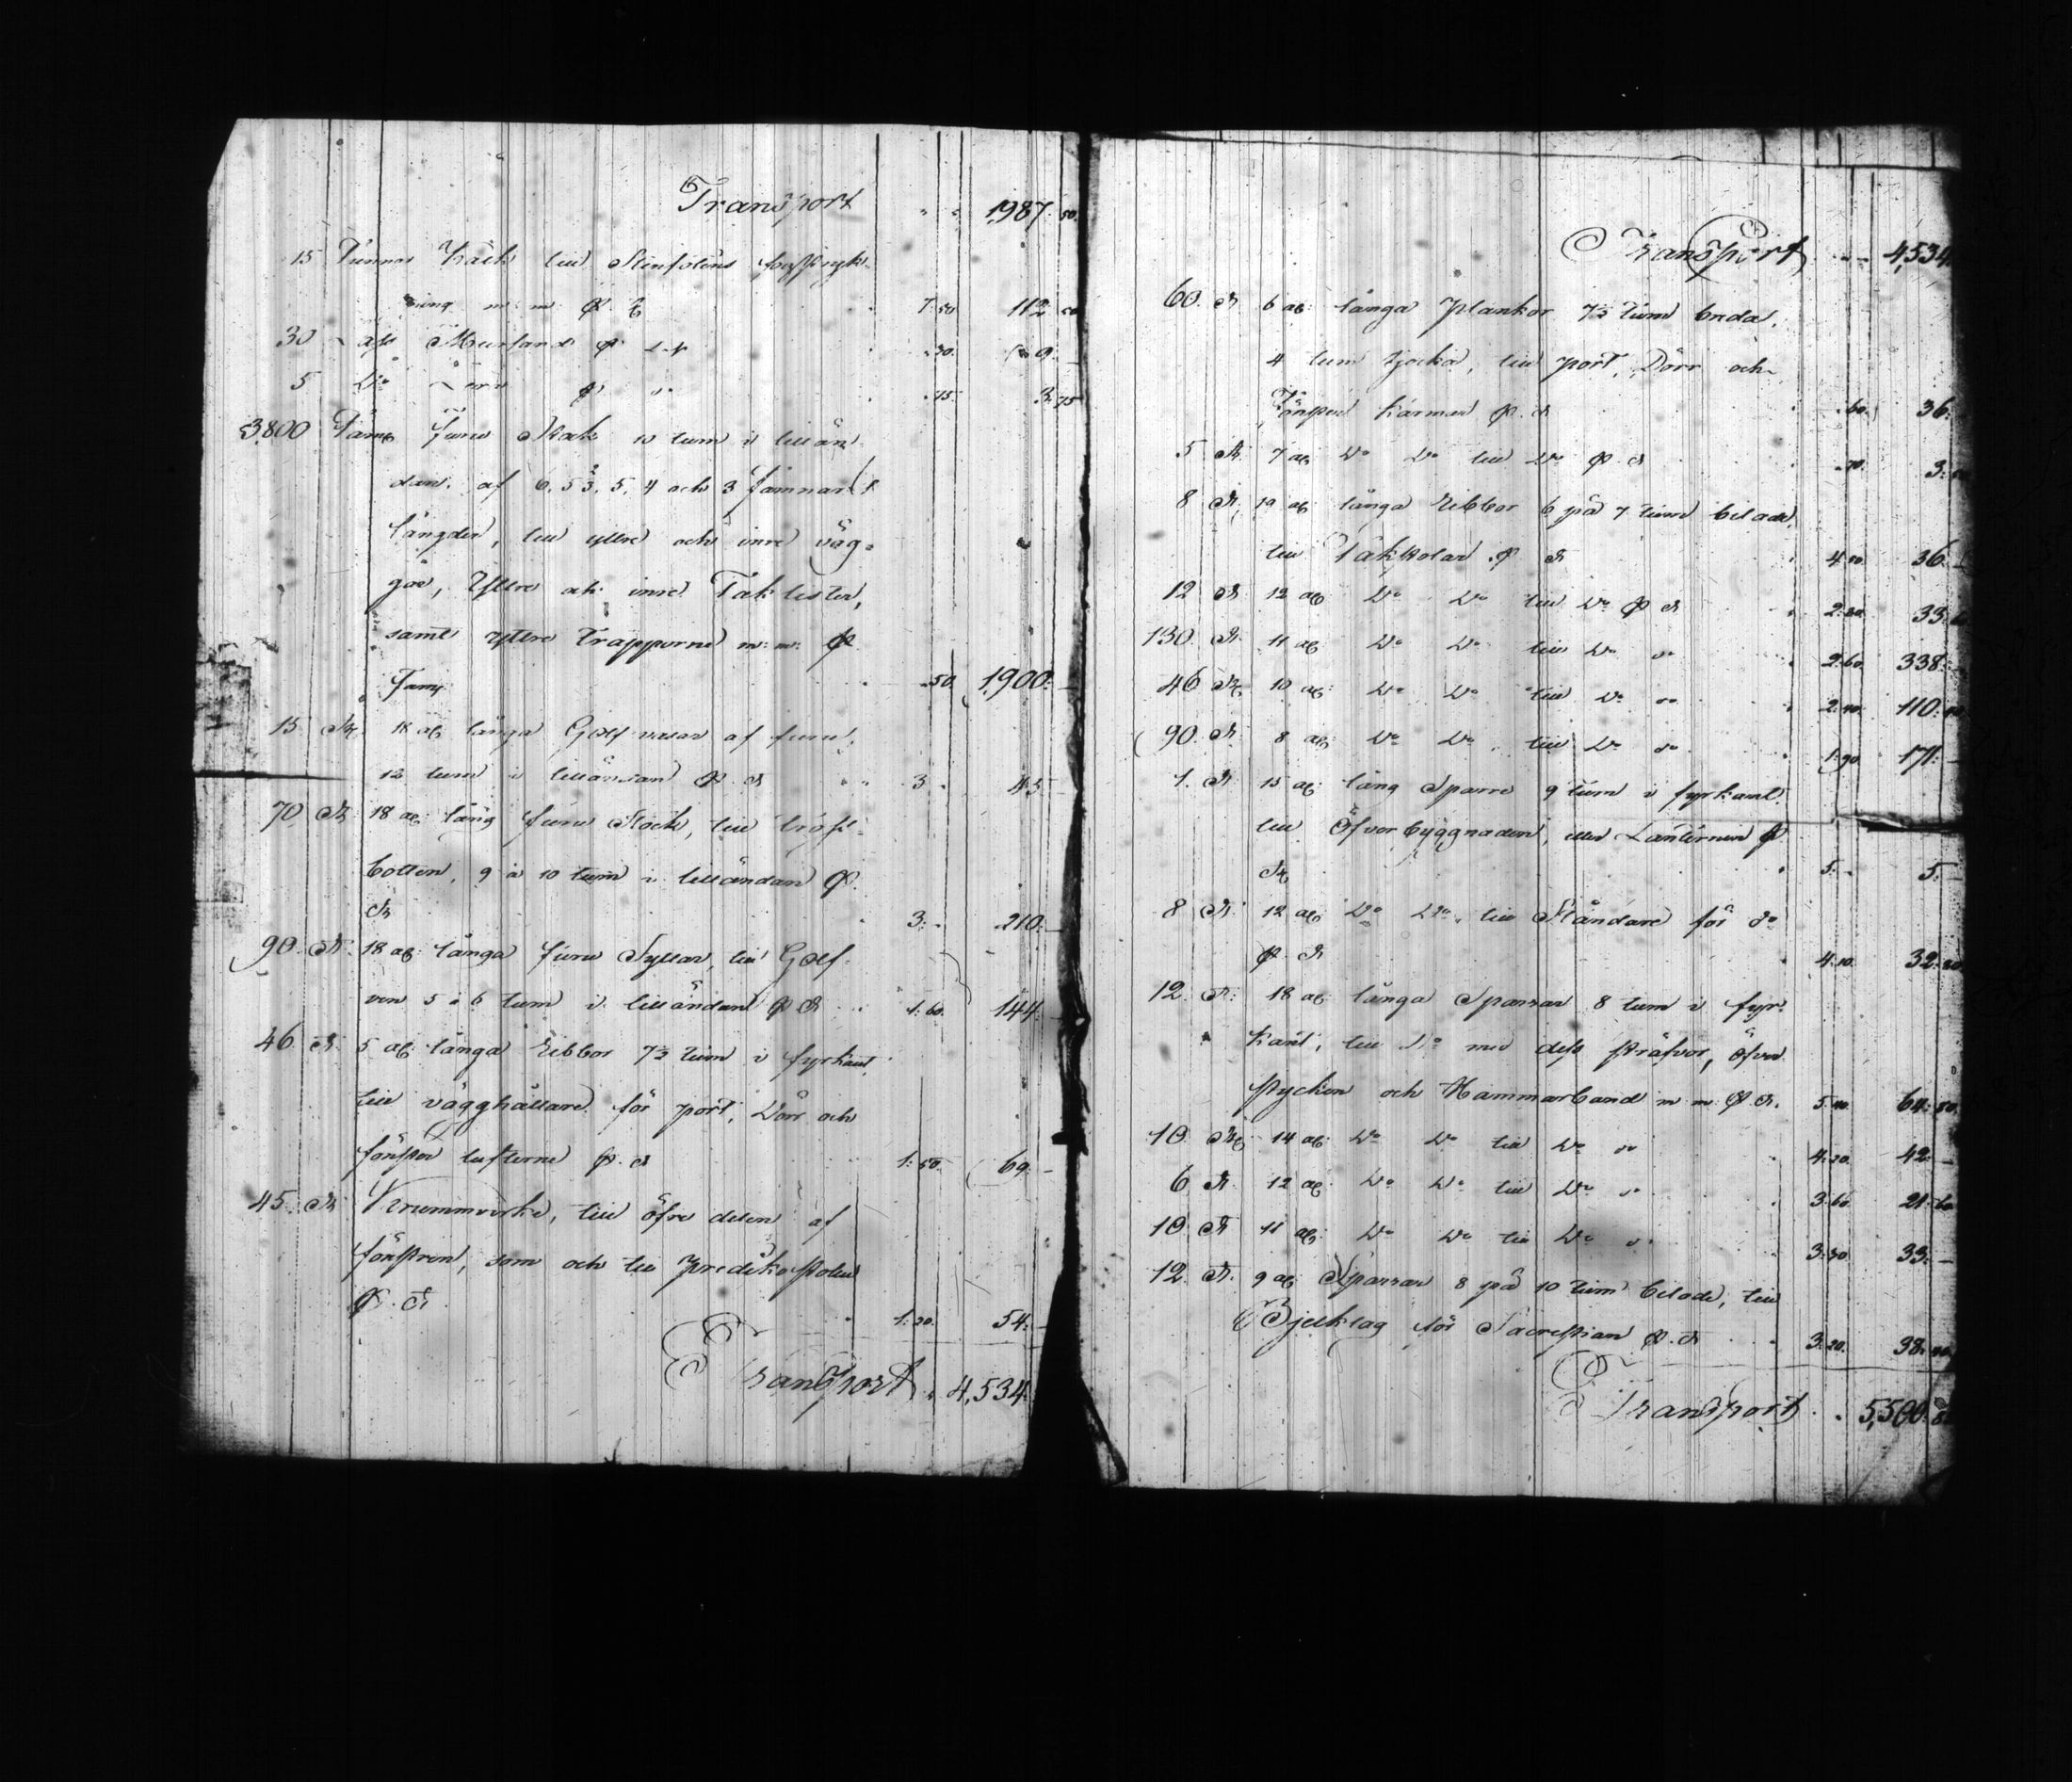 Transport " " 1,987. 50.
15 Tunnor Kalk till Stenfotens
ning m: m: 7: 50 112: 50
30 Mursand " 30. 9. —
5 Do " 75. 3: 75
3800 Famn Furu Stock 10 tum i lillän-
dan, af 6, 5½, 5, 4 och 3 famnars
längder, till yttre och inre väg-
gar, Yttre och inre Taklister,
samt yttre Trapporne m: m:
Famn " 50. 1,900: —
15 St. 18 al: långa Golfvasar af furu,
12 tum i lilländan St 3. " 45 —
70 St 18 al: lång furu Stock, till
botten, 9 à 10 tum i lilländan
St 3: " 210: —
90. St. 18 al: långa furu Syllar, till Golf-
ven 5 à 6 tum i lilländan St 1: 60. 144: —
46 St. 5 al: långa Ribbor 7½ tum i fyrkant,
till vägghållare för port, Dörr och
fönster lufterne St 1: 50. 69: —
45. St Krummvirke, till öfre delen af
fönstren, som och till Predikostolen
St. 1: 20. 54: —
Transport " 4,534.
Transport " " 4,534.
60. St 6 al: långa Plankor 7½ tum breda,
4 tum tjocka, till port, Dörr och
Fönster Karmar St " 60. 36: —
5 St 7 al: Do Do till Do St " 70. 3: 50
8 St. 19 al: långa Ribbor 6 på 7 tum bilade
till Takstolar St 4: 50. 36. —
12 St 12 al: Do Do till Do St 2: 80. 33: 60
130. St. 11 al: Do Do till Do do 2: 60. 338: —
46 St. 10 al: Do Do till Do do 2: 40. 110: 40
90. St 8 al: Do Do till Do do 1: 90. 171: —
1. St 15 al: lång Sparre 9 tum i fyrkant
till Öfverbyggnaden, eller Lanternin
St 5. " 5. —
8 St. 12 al: Do Do, till Ståndare för do
St 4: 10. 32: 80
12. St: 18 al: långa Sparrar 8 tum i fyr-
kant, till Do med dess sträfvor, öfver
stycken och Hammarband m m St. 5: 40. 64: 80.
10. St. 14 al: Do Do till Do do 4: 20. 42: —
6 St. 12 al: Do Do till Do do 3: 60. 21: 60
10 St 11 al: Do Do till Do do 3: 30. 33: —
12. St. 9 al: Sparrar 8 på 10 tum bilade, till
Bjelklag för Sacrestian St 3: 20. 38: 40
Transport " 5,500. 8